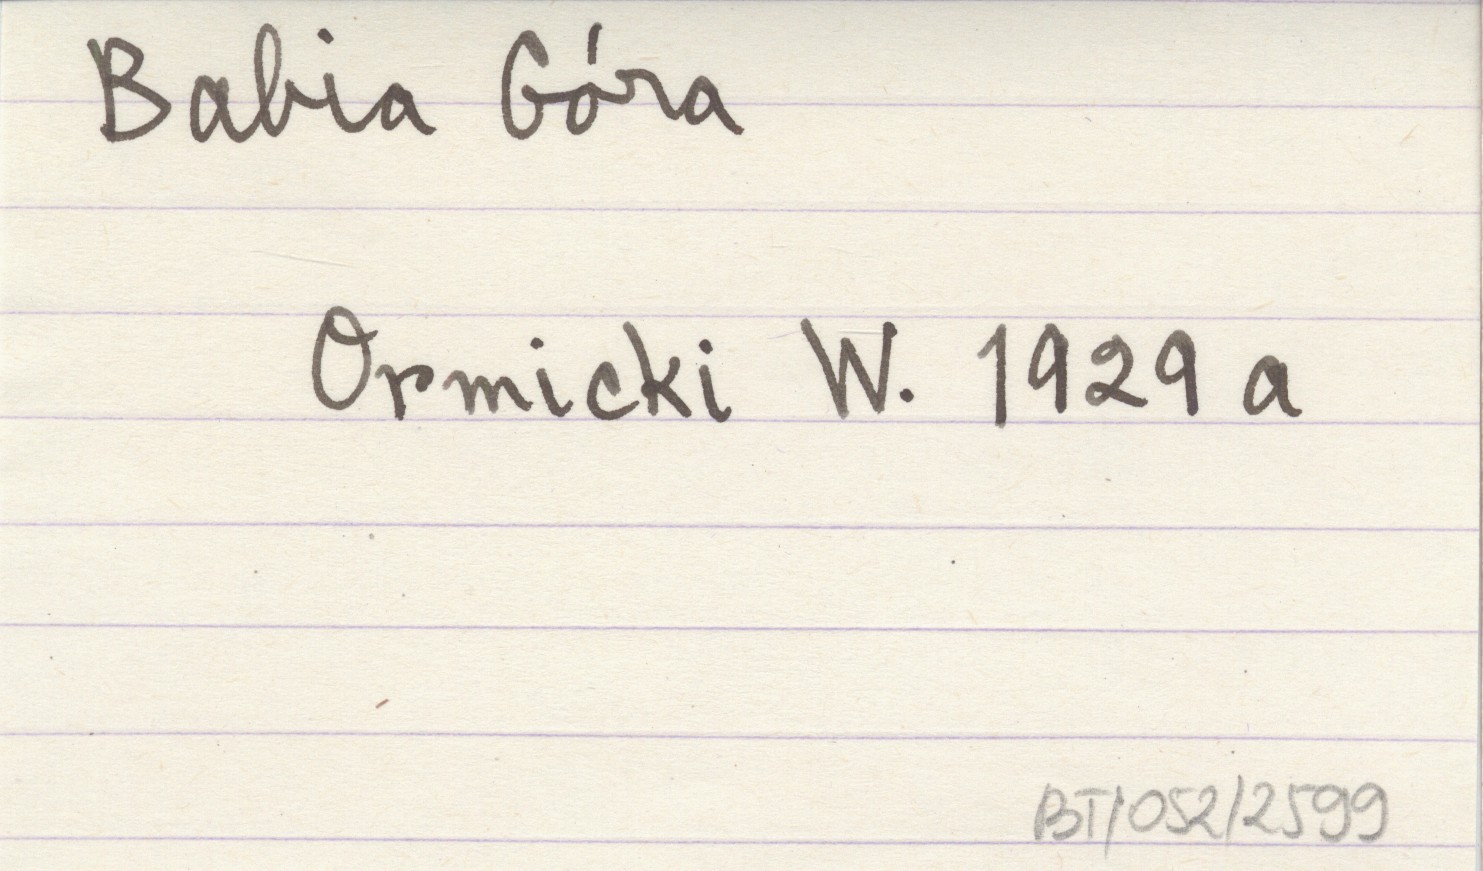 Babia Góra
Ormicki W. 1929 a
BT/052/2599